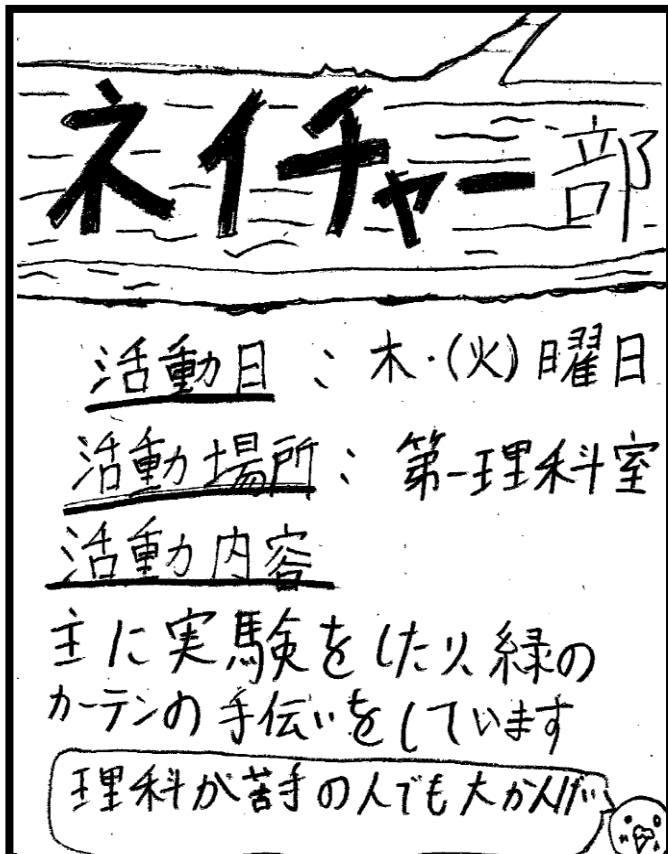 ネイチャー部
活動日：木・(火)曜日
活動場所：第一理科室
活動内容
主に実験をしたり、緑の
カーテンの手伝いをしています
理科が苦手の人でも大かんげい